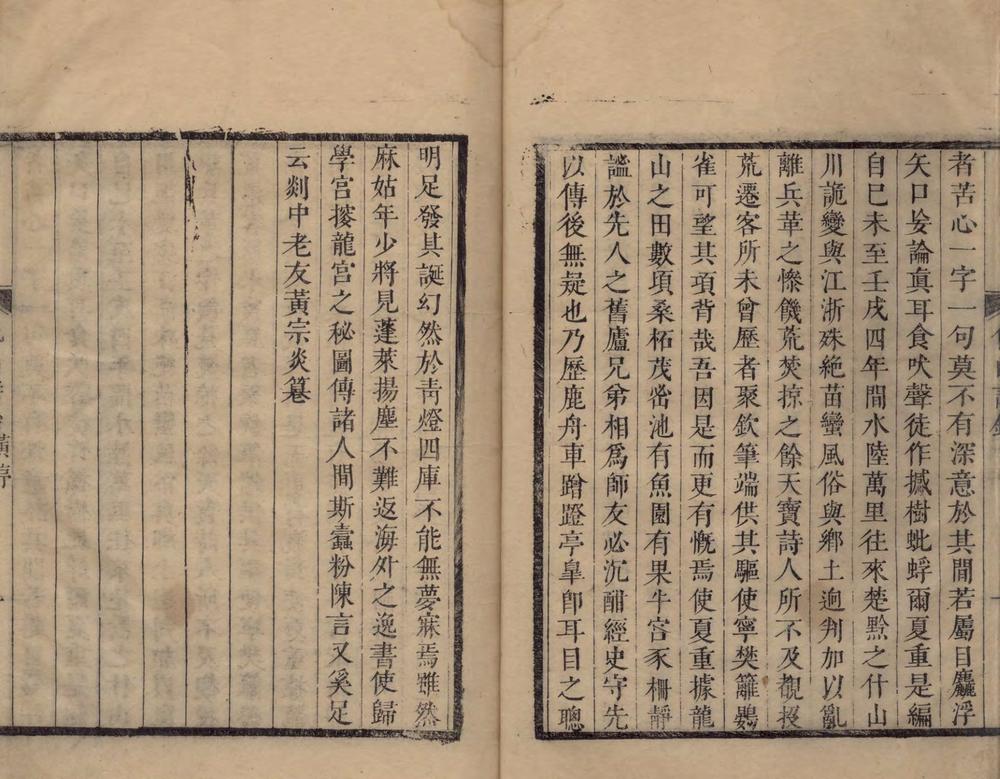 者苦心一字一句莫不有深意於其閒若屬目麤浮
矢口妄論眞耳食吠聲徒作撼樹蚍蜉爾夏重是編
自巳未至壬戌四年間水陸萬里往來楚黔之什山
川詭變與江浙殊絶苗蠻風俗與鄕土逈判加以亂
離兵革之慘饑荒焚掠之餘天寶詩人所不及覩投
荒遷客所未曾歷者聚欽筆端供其驅使寧樊籬鷃
雀可望其項背哉吾因是而更有慨焉使夏重據龍
山之田數頃桑柘茂宻池有魚園有果牛宫豕柵靜
謐於先人之舊廬兄弟相爲師友必沉酣經史守先
以傳後無疑也乃歷鹿舟車蹭蹬亭臯卽耳目之聰
明足發其誕幻然於靑燈四庫不能無夢寐焉雖然
麻姑年少將見蓬萊揚塵不難返海外之逸書使歸
學宫搜龍宫之秘圖傳諸人間斯蠧粉陳言又奚足
云剡中老友黃宗炎篹